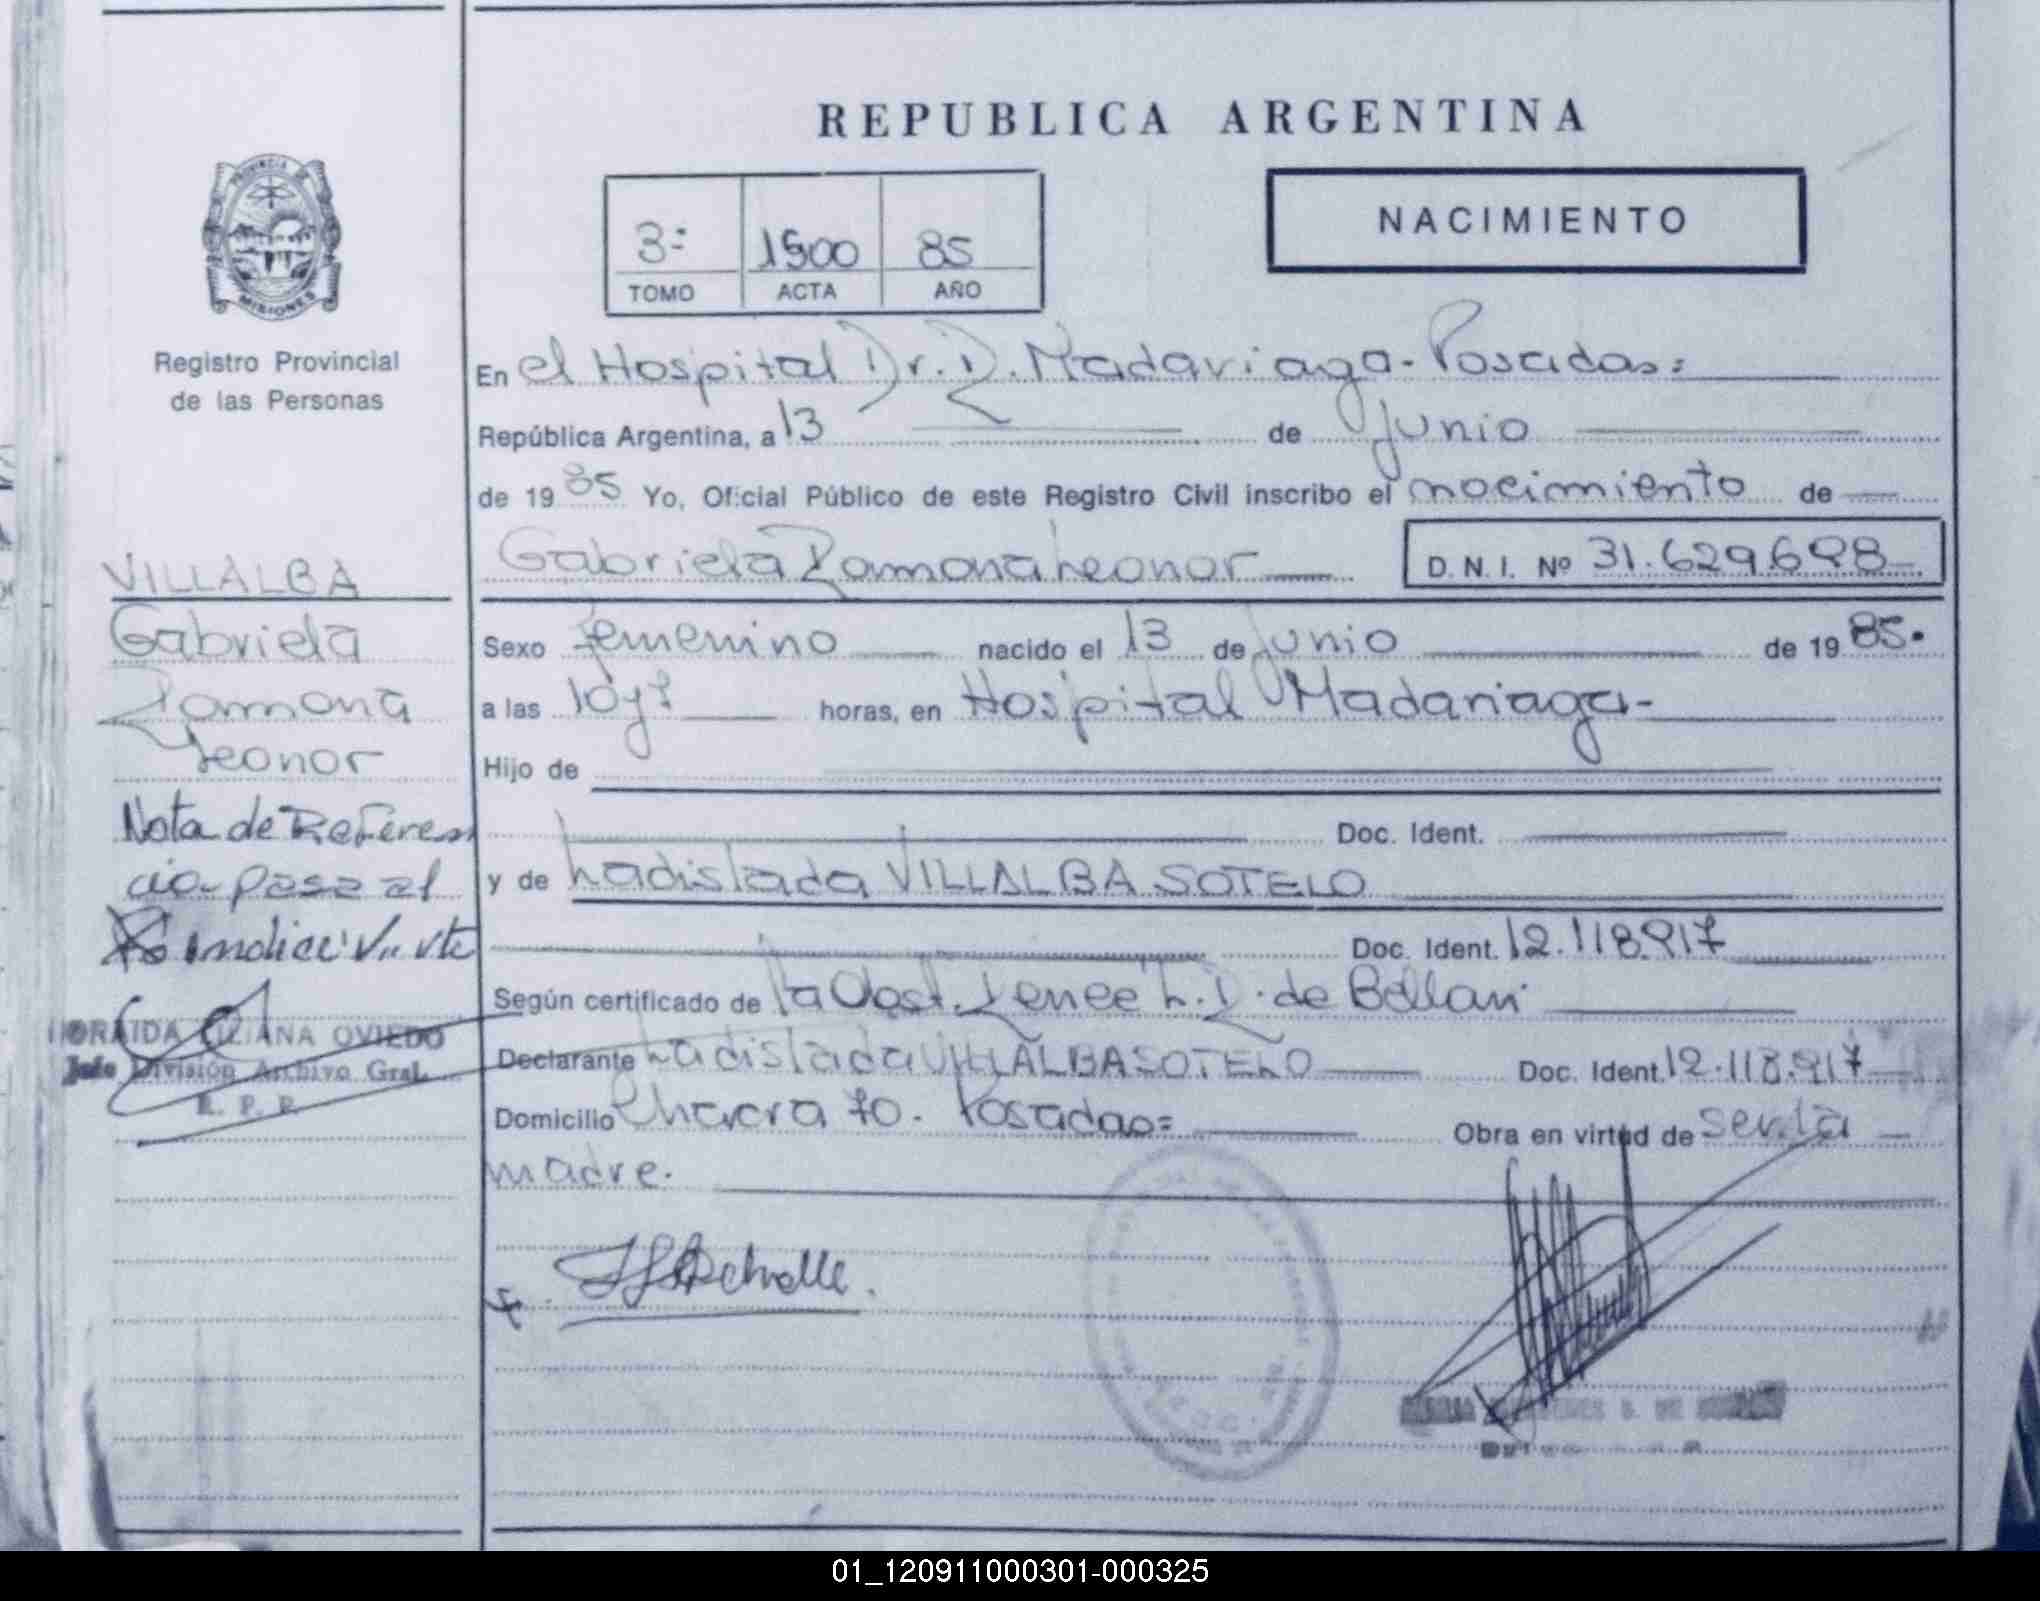 REPUBLICA ARGENTINA
PROVINCIA DE
MISIONES
Registro Provincial
de las Personas
3º 1500 85
TOMO ACTA AÑO
NACIMIENTO
En el Hospital Dr. R. Madariaga - Posadas=
República Argentina, a 13 de Junio
de 1985 Yo, Oficial Público de este Registro Civil inscribo el nacimiento de
Gabriela Ramona Leonor D. N. I. Nº 31.629.698
VILLALBA
Gabriela
Ramona
Leonor
Nota de Referen
cia - pasa al
indice
ORAIDA LILIANA OVIEDO
Jefe División Archivo Gral.
R. P. P.
Sexo femenino nacido el 13 de Junio de 1985.
a las 10 y horas, en Hospital Madariaga-
Hijo de
Doc. Ident.
y de Ladislada VILLALBA SOTELO
Doc. Ident. 12.118.917
Según certificado de la Obst. Renee L. R. de
Declarante Ladislada VILLALBA SOTELO Doc. Ident. 12.118.917
Domicilio Chacra 70. Posadas= Obra en virtud de ser la
madre.
01_120911000301-000325